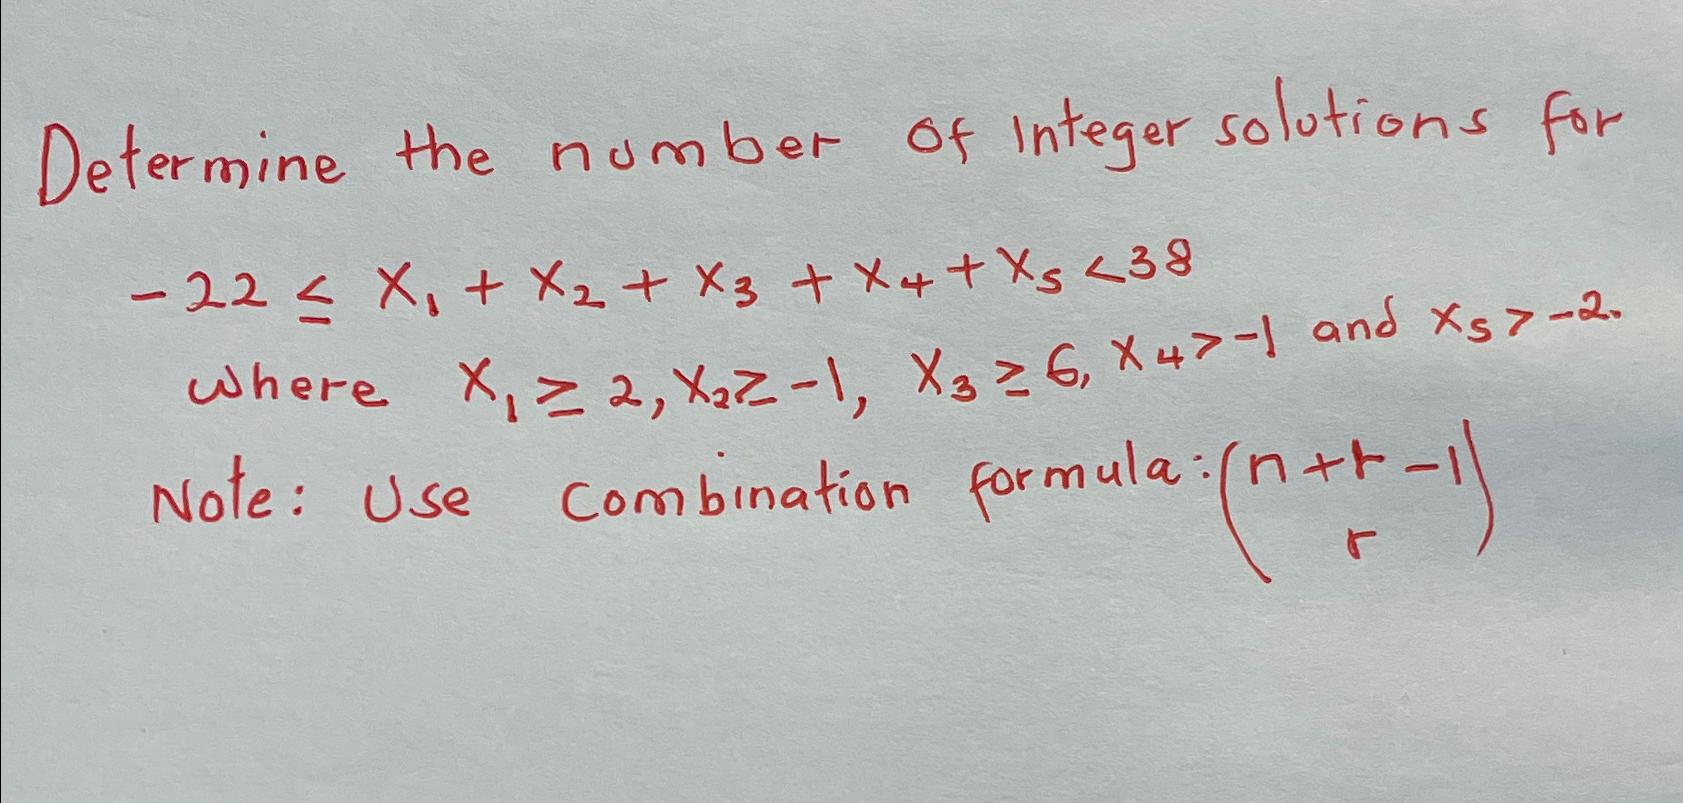 Determine the number of Integer solutions for
-22 ≤ X₁ + X₂ + X₃ + X₄ + X₅ < 38
where X₁ ≥ 2, X₂ ≥ -1, X₃ ≥ 6, X₄ > -1 and X₅ > -2.
Note: Use Combination formula: (n+r-1
r)